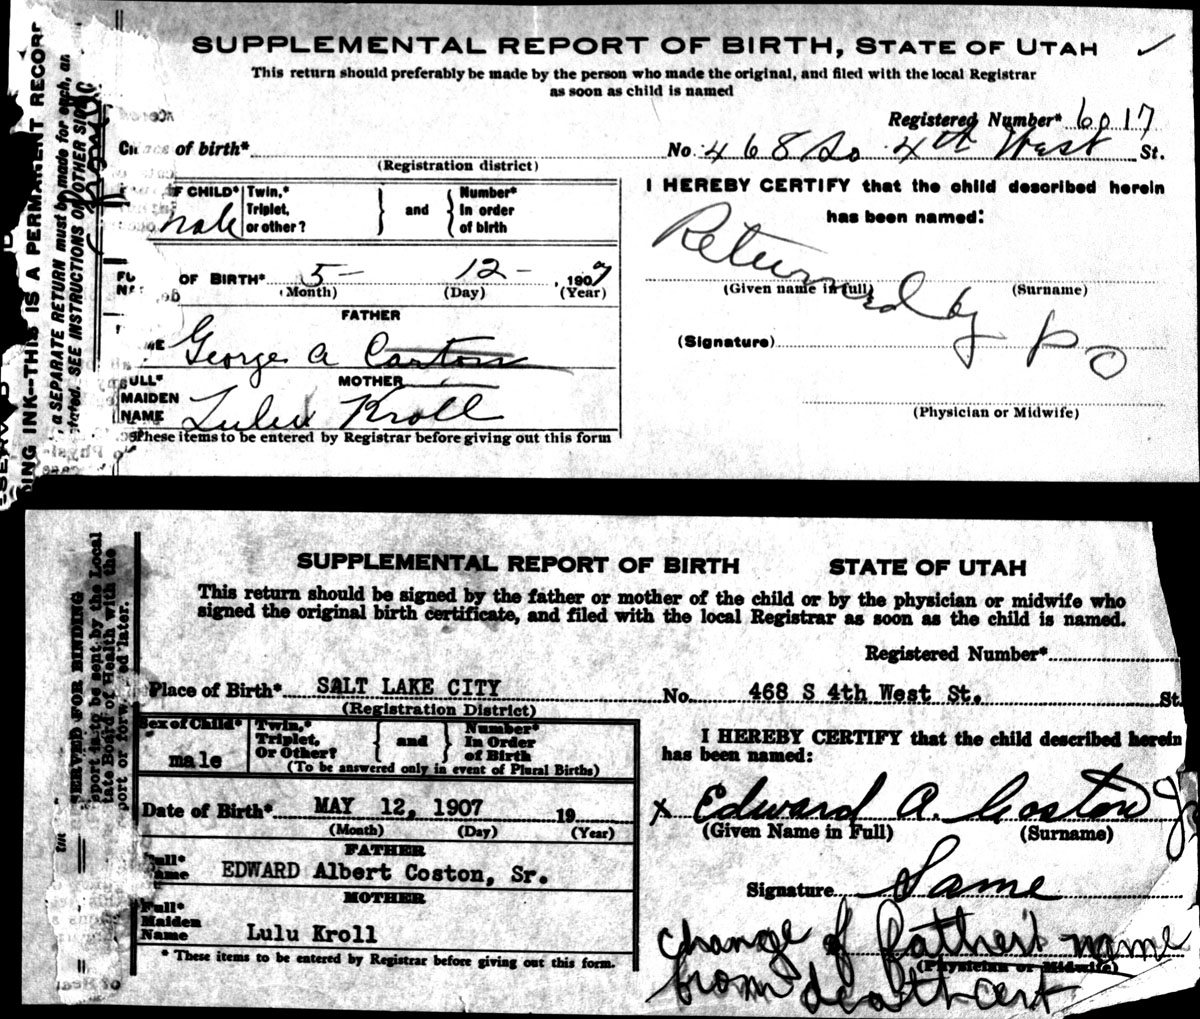 SUPPLEMENTAL REPORT OF BIRTH, STATE OF UTAH
This return should preferably be made by the person who made the original, and filed with the local Registrar
as soon as child is named
Registered Number* 6017
of birth*
(Registration district)
No. 468 So 4th West St.
I HEREBY CERTIFY that the child described herein
has been named:
OF CHILD* Twin,* Triplet, or other? } and { Number* In order of birth
male
OF BIRTH* 5- 12- , 1907
(Month) (Day) (Year)
Returned by P O
(Given name in full) (Surname)
FATHER
George A Coston
(Signature)
ULL* MAIDEN NAME
MOTHER
Lulu Kroll
(Physician or Midwife)
*These items to be entered by Registrar before giving out this form
ING INK—THIS IS A PERMANENT RECORD
a SEPARATE RETURN must be made for each, an
stated. SEE INSTRUCTIONS ON OTHER SIDE
SUPPLEMENTAL REPORT OF BIRTH STATE OF UTAH
This return should be signed by the father or mother of the child or by the physician or midwife who
signed the original birth certificate, and filed with the local Registrar as soon as the child is named.
Registered Number*
Place of Birth* SALT LAKE CITY
(Registration District)
No. 468 S 4th West St. St.
Sex of Child* Twin,* Triplet, Or Other? } and { Number* In Order of Birth
male
(To be answered only in event of Plural Births)
I HEREBY CERTIFY that the child described herein
has been named:
Date of Birth* MAY 12, 1907 19
(Month) (Day) (Year)
x Edward A. Coston Jr
(Given Name in Full) (Surname)
FATHER
Full* Name EDWARD Albert Coston, Sr.
Signature Same
MOTHER
Full* Maiden Name Lulu Kroll
* These items to be entered by Registrar before giving out this form.
change of father's name
(Physician or Midwife)
from death cert
SERVED FOR BINDING
port is to be sent by the Local
tate Board of Health with the
port or forw ed later.